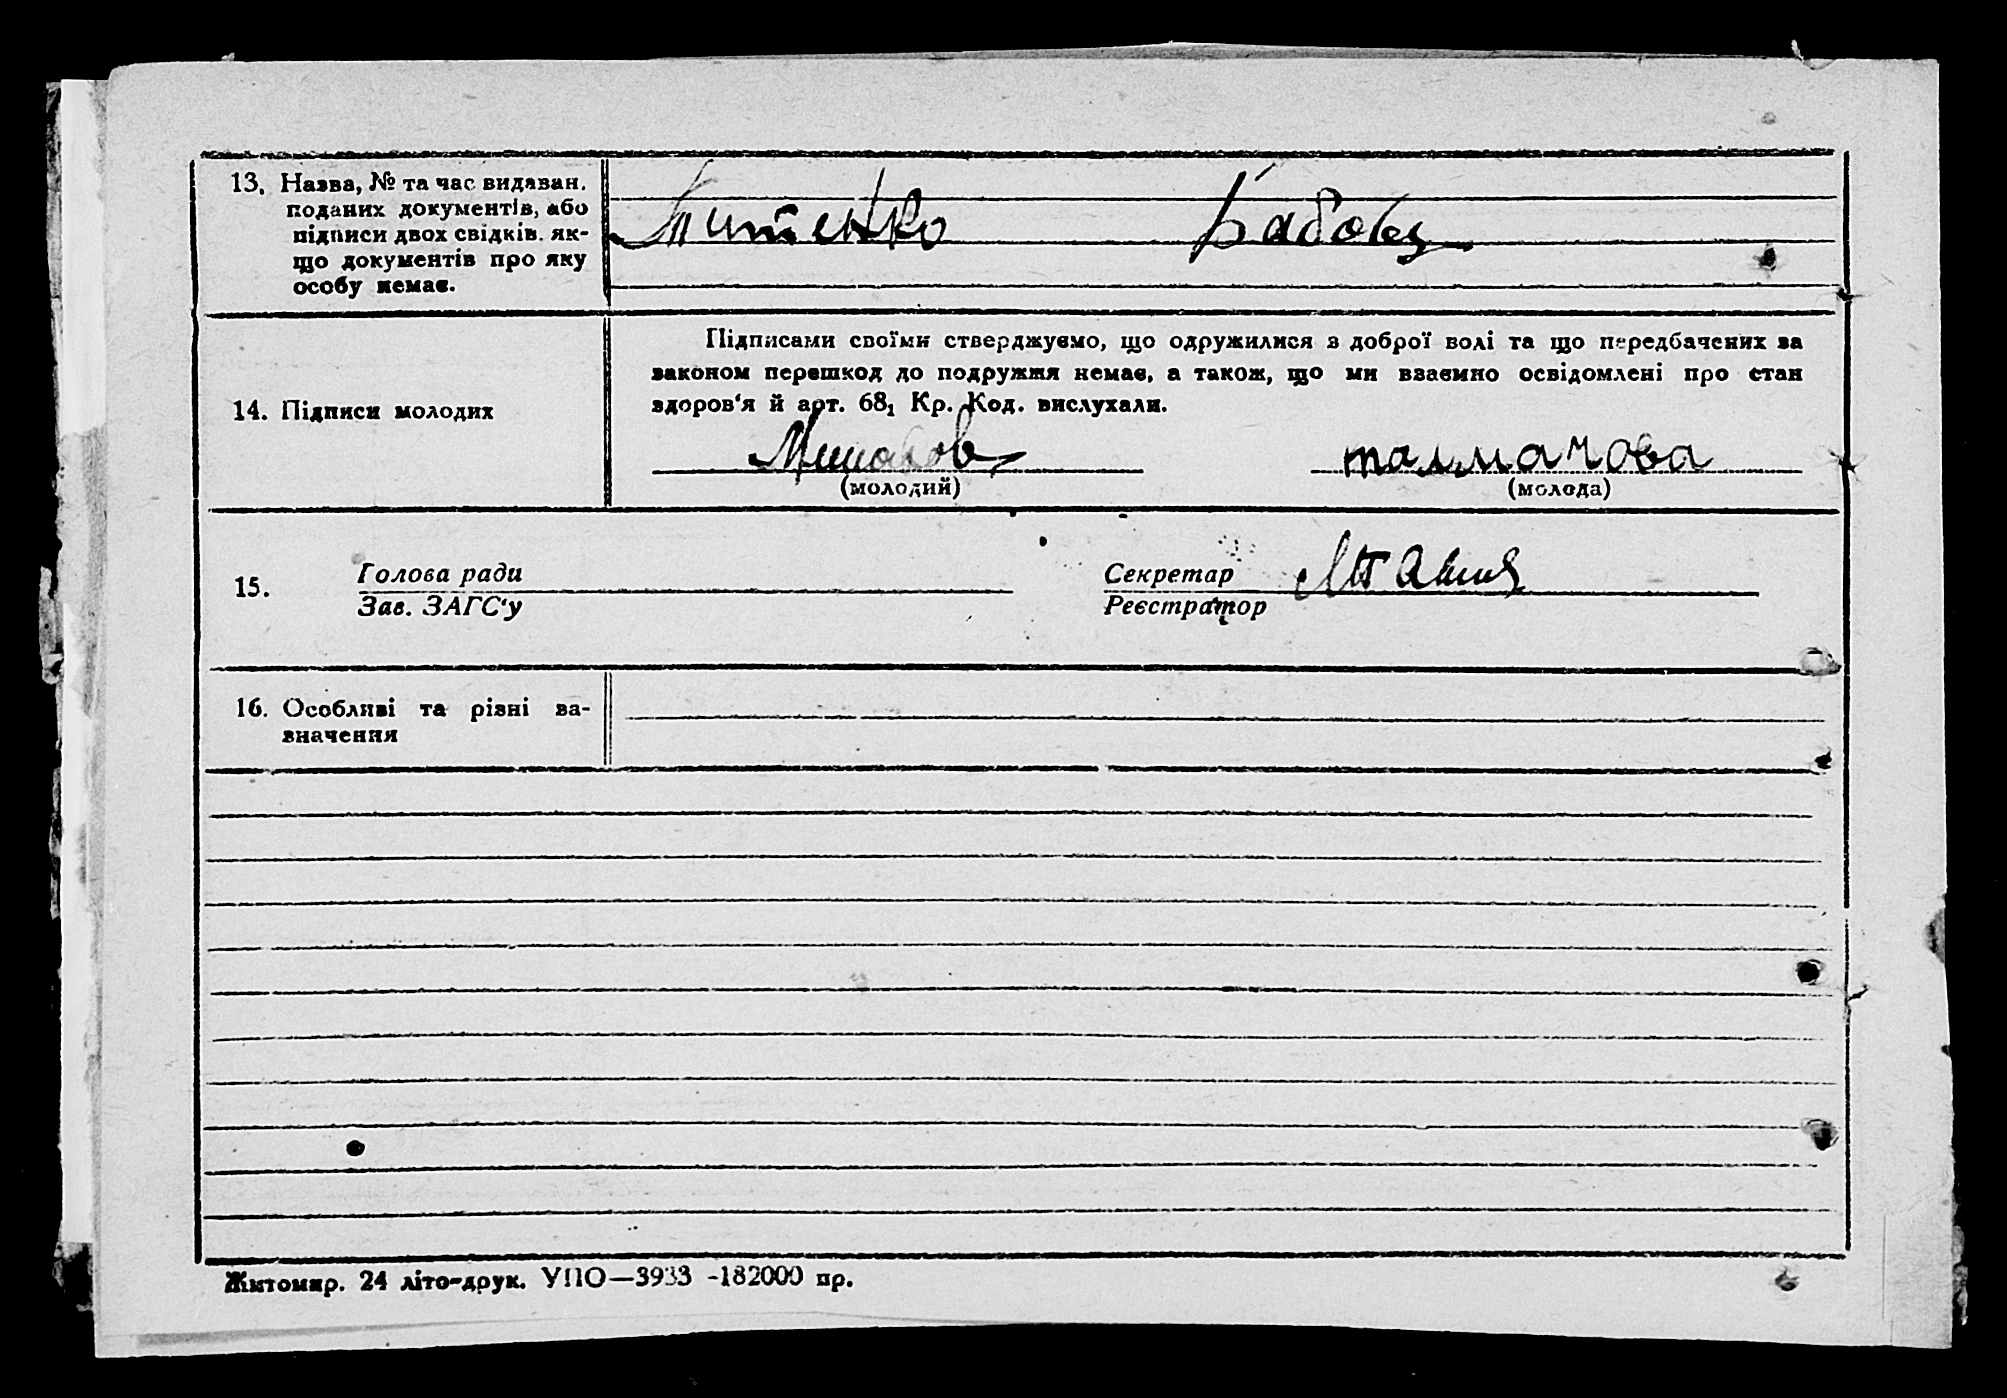 13. Назва, № та час видаван.
поданих документів, або
підписи двох свідків. як-
що документів про яку
особу немає.
Титенко Бабовц
Підписами своїми стверджуємо, що одружилися з доброї волі та що передбачених за
законом перешкод до подружжя немає, а також, що ми взаємно освідомлені про стан
здоров‘я й арт. 68₁ Кр. Код. вислухали.
14. Підписи молодих
талмачова
(молодий) (молода)
15. Голова ради Секретар
Зав. ЗАГС‘у Реєстратор
16. Особливі та різні за-
значення
Житомир. 24 літо-друк. УПО—3933 -182000 пр.